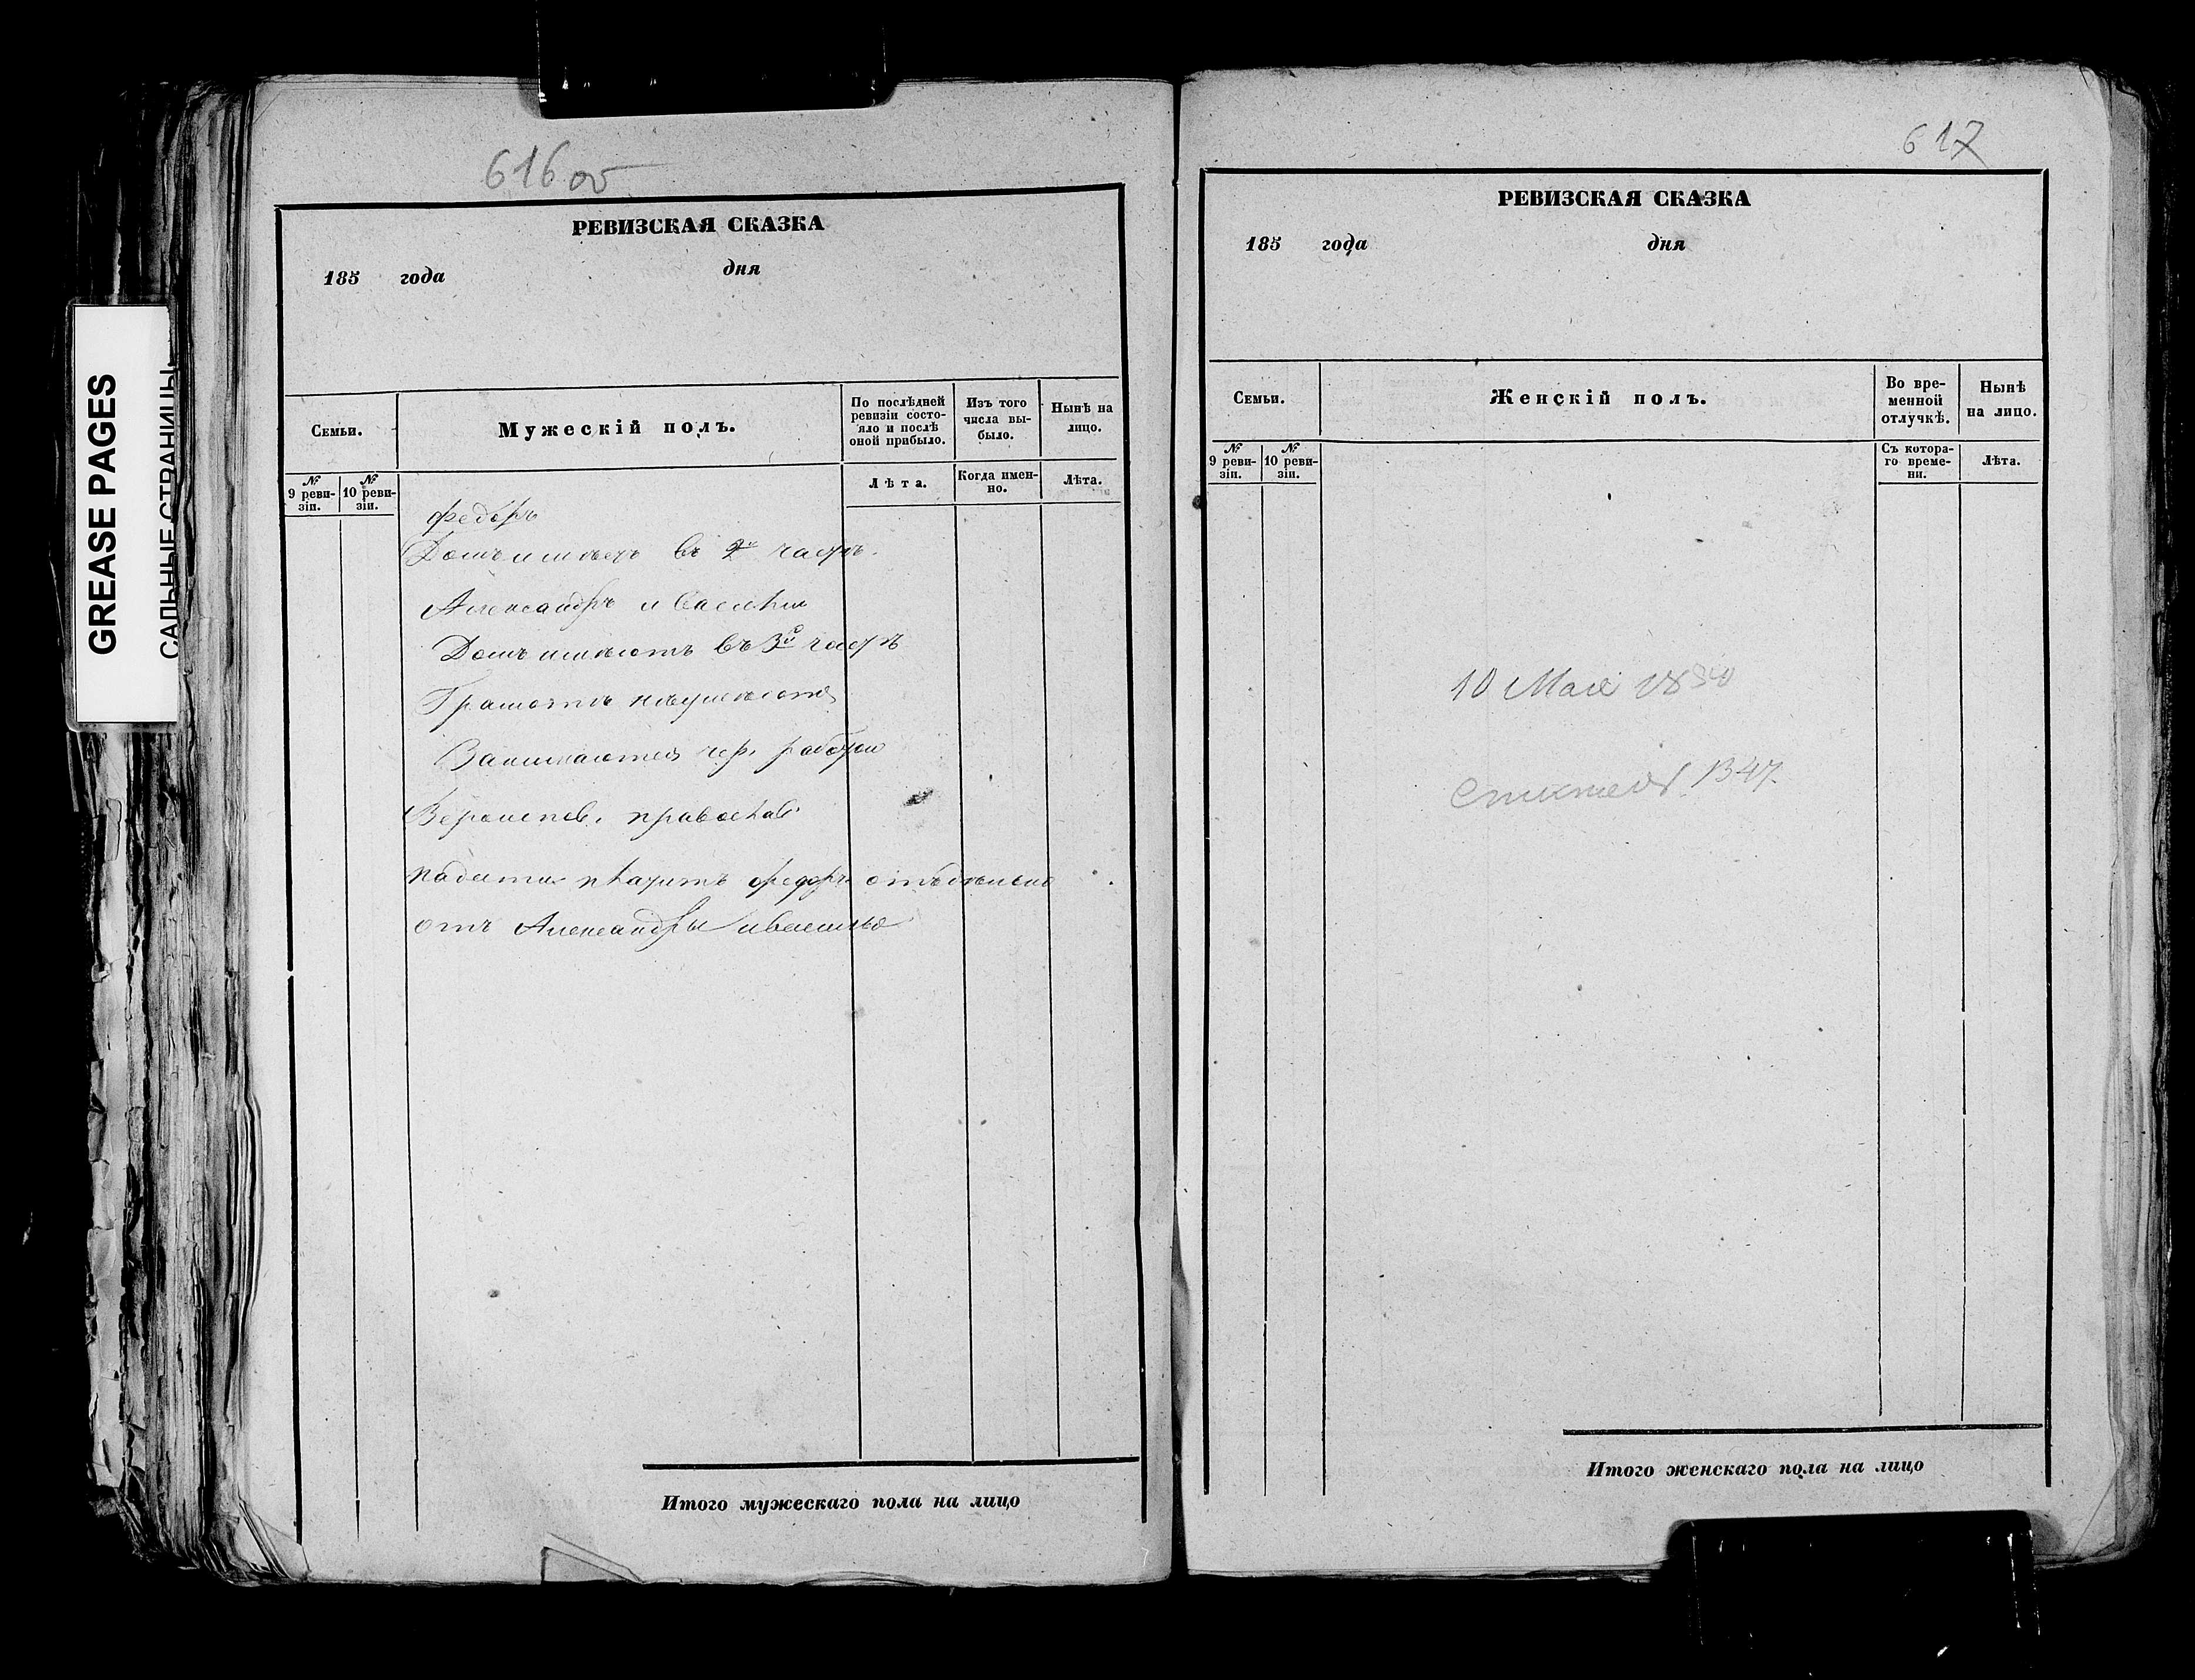 GREASE PAGES
САЛЬНЫЕ СТРАНИЦЫ
616 об
РЕВИЗСКАЯ СКАЗКА
185 года дня
Семьи.
Мужескій полъ.
По послѣдней ревизіи состояло и послѣ оной прибыло.
Изъ того числа выбыло.
Нынѣ на лицо.
№ 9 ревизіи.
№ 10 ревизіи.
Лѣта.
Когда именно.
Лѣта.
федоръ
Домъ имѣетъ въ 2й части.
Александръ и Василiи
Домъ имѣютъ въ 3й части
Грамотѣ неумѣютъ
Занимаются чер. работои
Вероиспов. православ
подати платитъ федоръ отъдѣльно
отъ Александры
617
РЕВИЗСКАЯ СКАЗКА
185 года дня
Семьи.
Женскій полъ.
Во временной отлучкѣ.
Нынѣ на лицо.
№ 9 ревизіи.
№ 10 ревизіи.
Съ котораго времени.
Лѣта.
10 Мая
1347.
Итого мужескаго пола на лицо
Итого женскаго пола на лицо